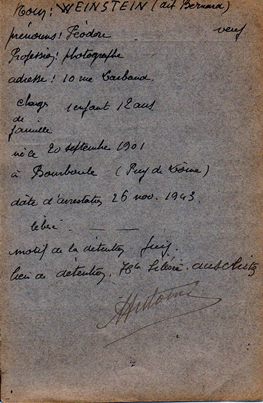 Nom: WEINSTEIN (dit Bernard)
prénoms: Féodor veuf
Profession: photographe
adresse: 10 rue
charges 1 enfant 12 ans
de
famille
né le 20 septembre 1901
à Bourboule (Puy de Dôme)
date d'arrestation 26 nov. 1943
motif de la détention juif.
lieu de détention. auschwitz